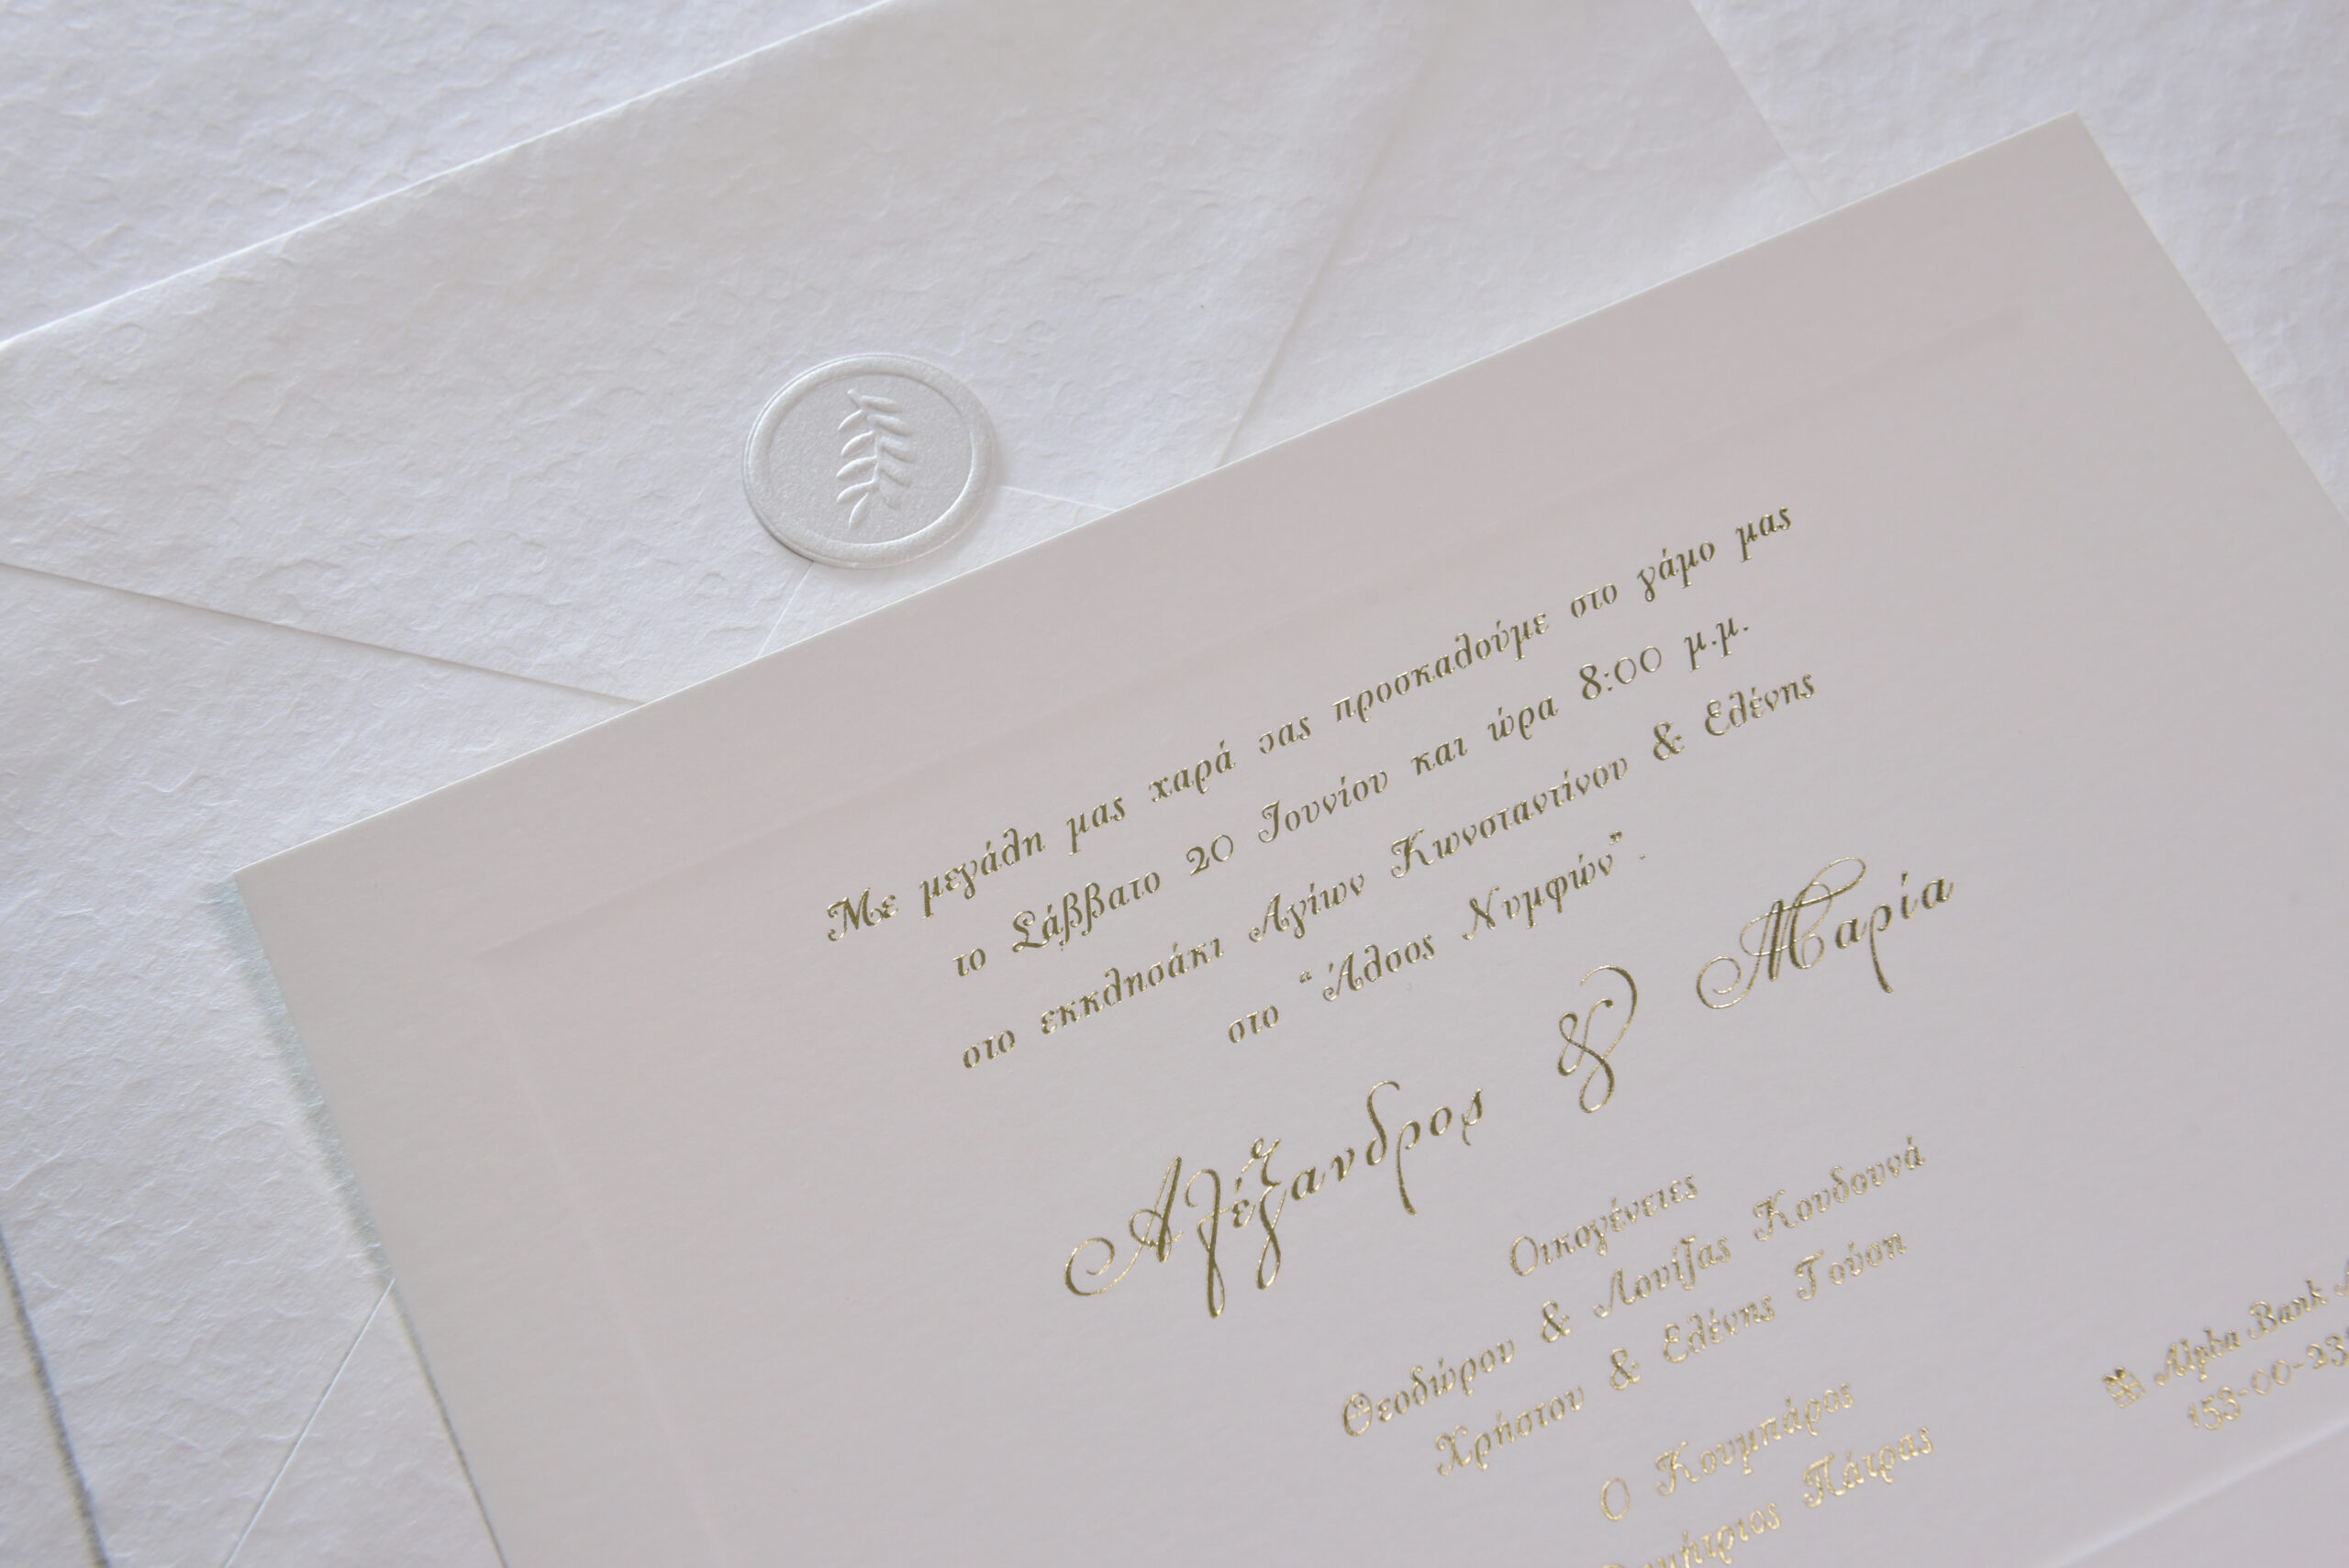 Με μεγάλη μας χαρά σας προσκαλούμε στο γάμο μας
το Σάββατο 20 Ιουνίου και ώρα 8:00 μ.μ.
στο εκκλησάκι Αγίων Κωνσταντίνου & Ελένης
στο “Άλσος Νυμφών”.
Αλέξανδρος & Μαρία
Οικογένειες
Θεοδώρου & Λουίζας Κουδουνά
Χρήστου & Ελένης Τούση
Ο Κουμπάρος
Πάτρας
Alpha Bank
153-00-23